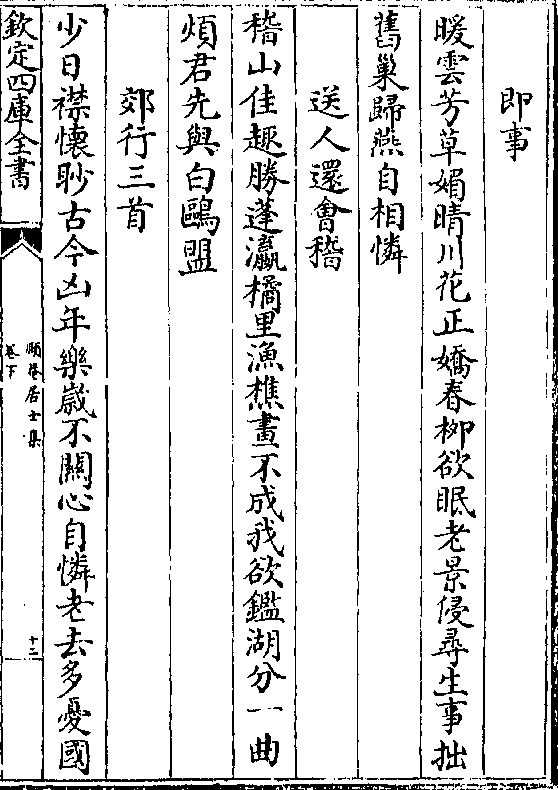 即事
暖雲芳草媚晴川花正嬌春栁欲眠老景侵尋生事拙
舊巢歸燕自相憐
送人還會稽
稽山佳趣勝蓬瀛橘里漁樵畫不成我欲鑑湖分一曲
煩君先與白鷗盟
郊行三首
少日襟懷眇古今凶年樂歲不關心自憐老去多憂國
欽定四庫全書
頤菴居士集
卷下
十二